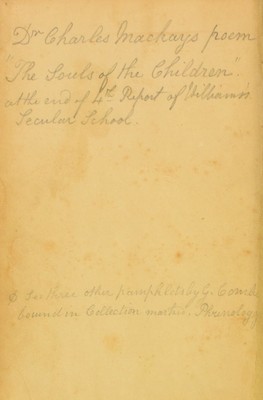 Dr Charles Mackays poem
"The Souls of the Children"
at the end of 4th Report of Williams
Secular School.
& See three other pamphlets by G. Combe
bound in Collection marked. Phrenology